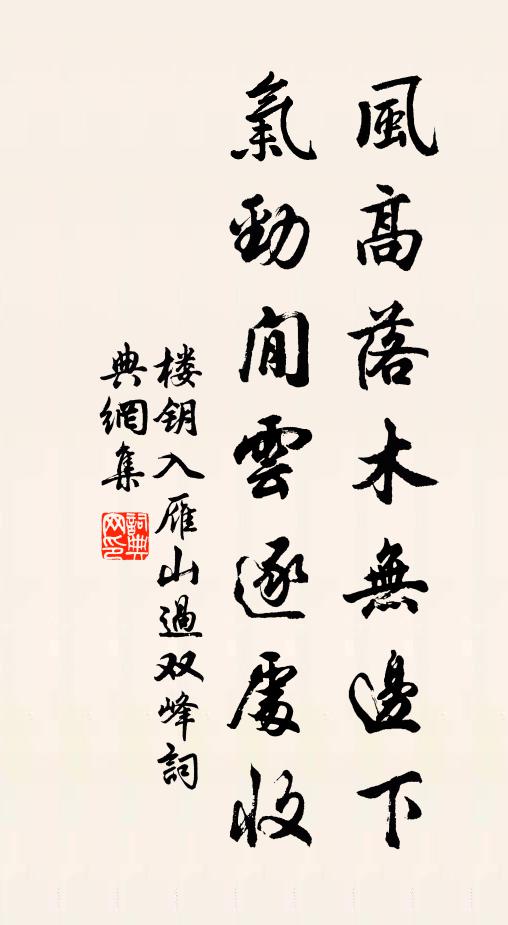 風高落木無邊下
氣勁閒雲逐處收
楼钥入雁山過双峰詞
典網集
詞典網印